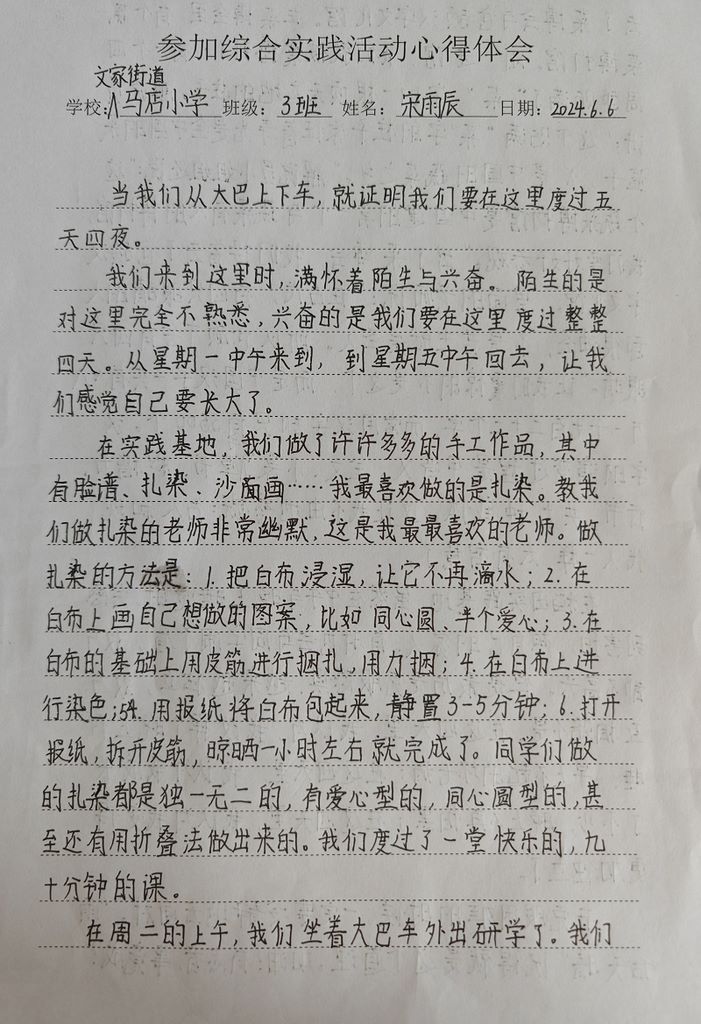 参加综合实践活动心得体会
文家街道
学校:马店小学 班级:3班 姓名:宋雨辰 日期:2024.6.6
当我们从大巴上下车,就证明我们要在这里度过五
天四夜。
我们来到这里时,满怀着陌生与兴奋。陌生的是
对这里完全不熟悉,兴奋的是我们要在这里度过整整
四天。从星期一中午来到,到星期五中午回去,让我
们感觉自己要长大了。
在实践基地,我们做了许许多多的手工作品,其中
有脸谱、扎染、沙面画……我最喜欢做的是扎染。教我
们做扎染的老师非常幽默,这是我最最喜欢的老师。做
扎染的方法是:1.把白布浸湿,让它不再滴水;2.在
白布上画自己想做的图案,比如同心圆、半个爱心;3.在
白布的基础上用皮筋进行捆扎,用力捆;4.在白布上进
行染色;5.用报纸将白布包起来,静置3-5分钟;6.打开
报纸,拆开皮筋,晾晒一小时左右就完成了。同学们做
的扎染都是独一无二的,有爱心型的,同心圆型的,甚
至还有用折叠法做出来的。我们度过了一堂快乐的,九
十分钟的课。
在周二的上午,我们坐着大巴车外出研学了。我们